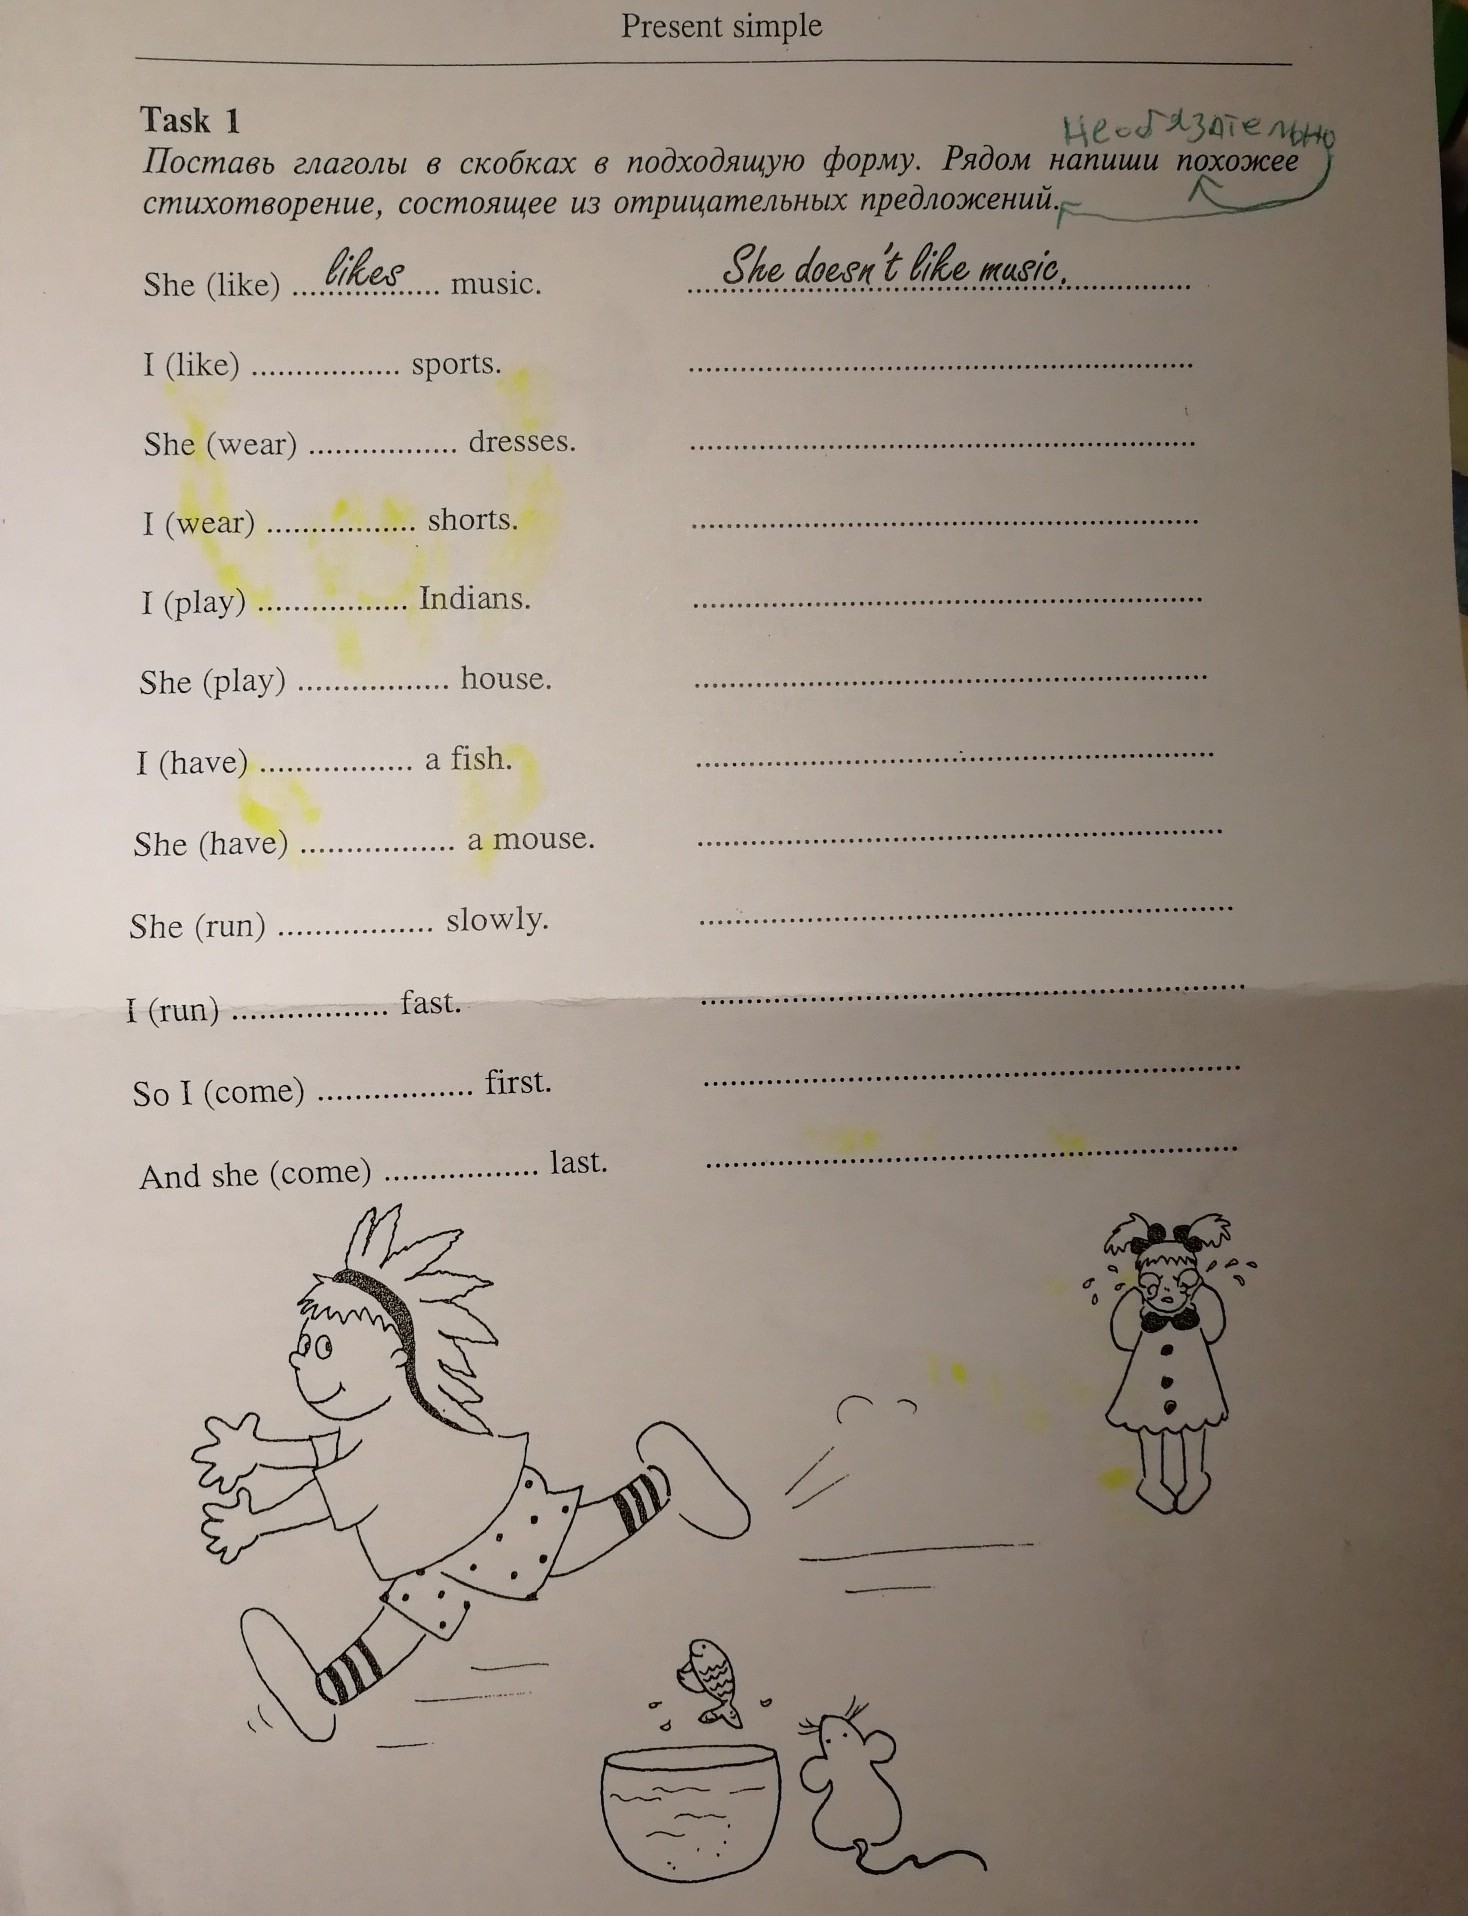 Present simple
Task 1
необязательно
Поставь глаголы в скобках в подходящую форму. Рядом напиши похожее
стихотворение, состоящее из отрицательных предложений.
She (like) ...likes... music. She doesn't like music.
I (like) ................. sports. ..........
She (wear) ................. dresses. ..........
I (wear) ................. shorts. ..........
I (play) ................. Indians. ..........
She (play) ................. house. ..........
I (have) ................. a fish. ..........
She (have) ................. a mouse. ..........
She (run) ................. slowly. ..........
I (run) ................. fast. ..........
So I (come) ................. first. ..........
And she (come) ................. last. ..........